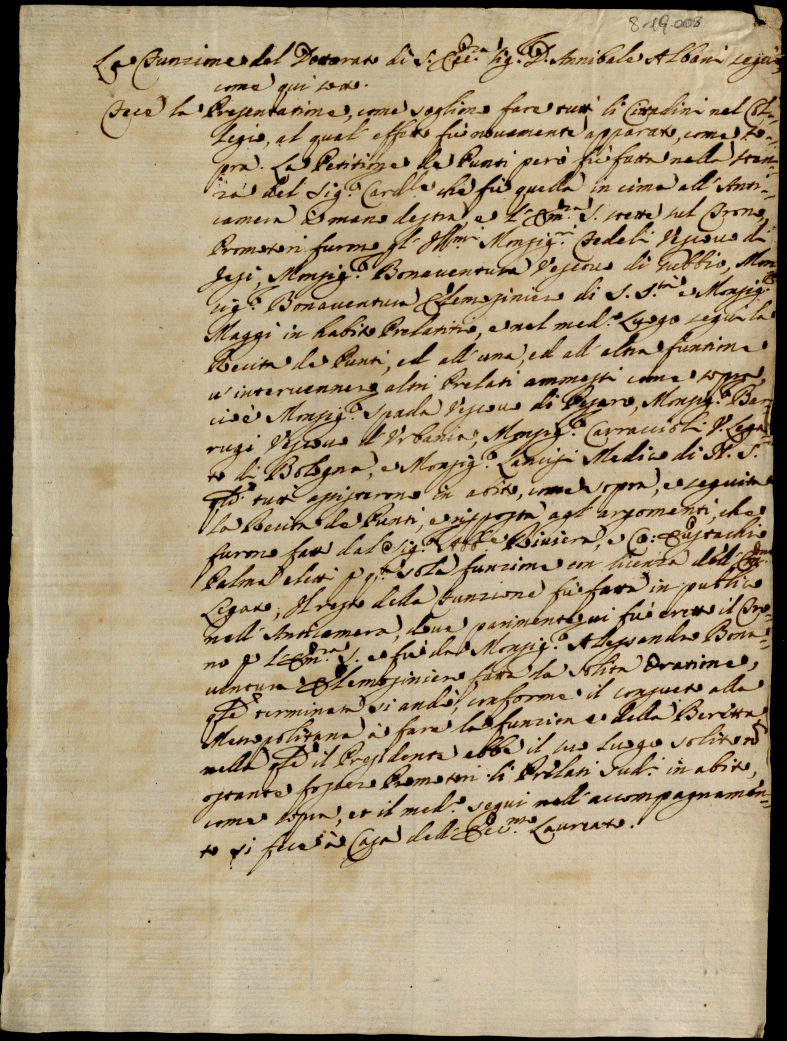 8-19-003
La Funzione del Dottorato di S. Ecc.za Sig.r D. Annibale Albani seguì,
come qui sotto.
Fece la Presentatione, come sogliono fare tutti li Cittadini nel Col-
legio, al qual'effetto fù novamente apparato, come so-
pra. La Petitione de Punti però fù fatta nella stan-
za del Sig.r Card.le che fù quella in cima all'Anti-
camera à mano destra, e l'Em.za S. stette sul Trono,
Promotori furono gl'Ill.mi Monsig.ri Fedeli Vescovo di
Jesi, Monsig.r Bonaventura Vescovo di Gubbio, Mon-
sig.r Bonaventura Elemosiniere di S. S.tà e Monsig.r
Maggi in habito Prelatitio, e nel med.o Luogo seguì la
Recita de Punti, ed all'una, ed all'altra funtione
v'intervennero altri Prelati ammessi come sopra,
cioè Monsig.r Spada Vescovo di Pesaro, Monsig.r Bar-
rugi Vescovo d'Urbania, Monsig.r Carraccioli V.Lega-
to di Bologna, e Monsig.r Lancisi Medico di N. S.
q.li tutti assisterono in abito, come sopra, e seguita
la Recita de Punti, e risposta agl'argomenti, che
furono fatti dal Sig.r Abb.e Riviera, e Co: Eustachio
Palma eletti p q.ta sola funzione con licenza dell'Em.mo
Legato, Il resto della Funzione fù fatta in publico
nell'Anticamera, dove parimente vi fù eretto il Tro-
no p l'Em.za S. e fù da Monsig.r Alessandro Bona-
ventura Elemosiniere fatta la solita Oratione,
q.le terminata si andò, conforme il consueto alla
Metropolitana à fare la funzione della Beretta,
nella q.le il Presidente ebbe il suo Luogo solito no
ostante fossero Promotori li Prelati sud.i in abito,
come sopra, et il med.o seguì nell'accompagnamen-
to si fece à Casa dell'Ecc.mo Laureato.